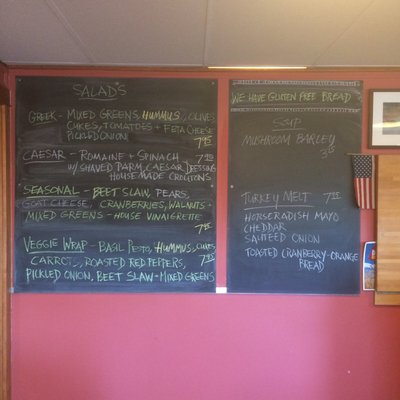 SALAD'S
GREEK - MIXED GREENS, HUMMUS, OLIVES
CUKES, TOMATOES + FETA CHEESE
PICKLED ONION 7.95
CAESAR - ROMAINE + SPINACH 7.95
W/ SHAVED PARM, CAESAR DRESSING
HOUSEMADE CROUTONS
SEASONAL - BEET SLAW, PEARS,
GOAT CHEESE, CRANBERRIES, WALNUTS -
MIXED GREENS - HOUSE VINAIGRETTE
7.95
VEGGIE WRAP - BASIL PESTO, HUMMUS, CUKES
CARROT, ROASTED RED PEPPERS, 7.95
PICKLED ONION, BEET SLAW - MIXED GREENS
WE HAVE GLUTEN FREE BREAD
SOUP
MUSHROOM BARLEY
TURKEY MELT 7.95
HORSERADISH MAYO
CHEDDAR
SAUTEED ONION
TOASTED CRANBERRY-ORANGE
BREAD